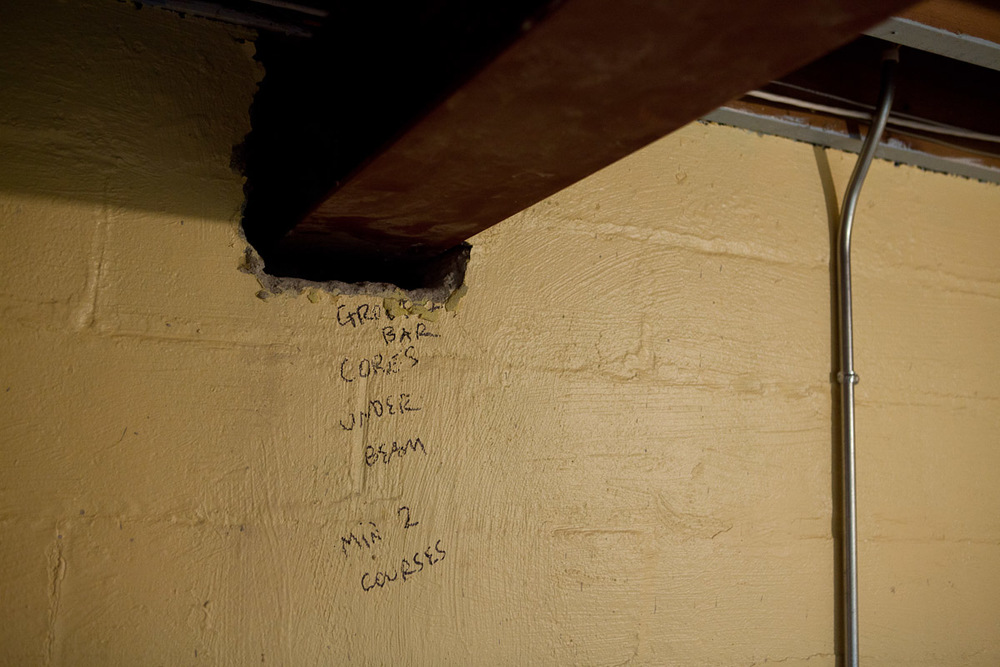 GROUT
BAR
CORES
UNDER
BEAM
MIN 2
COURSES